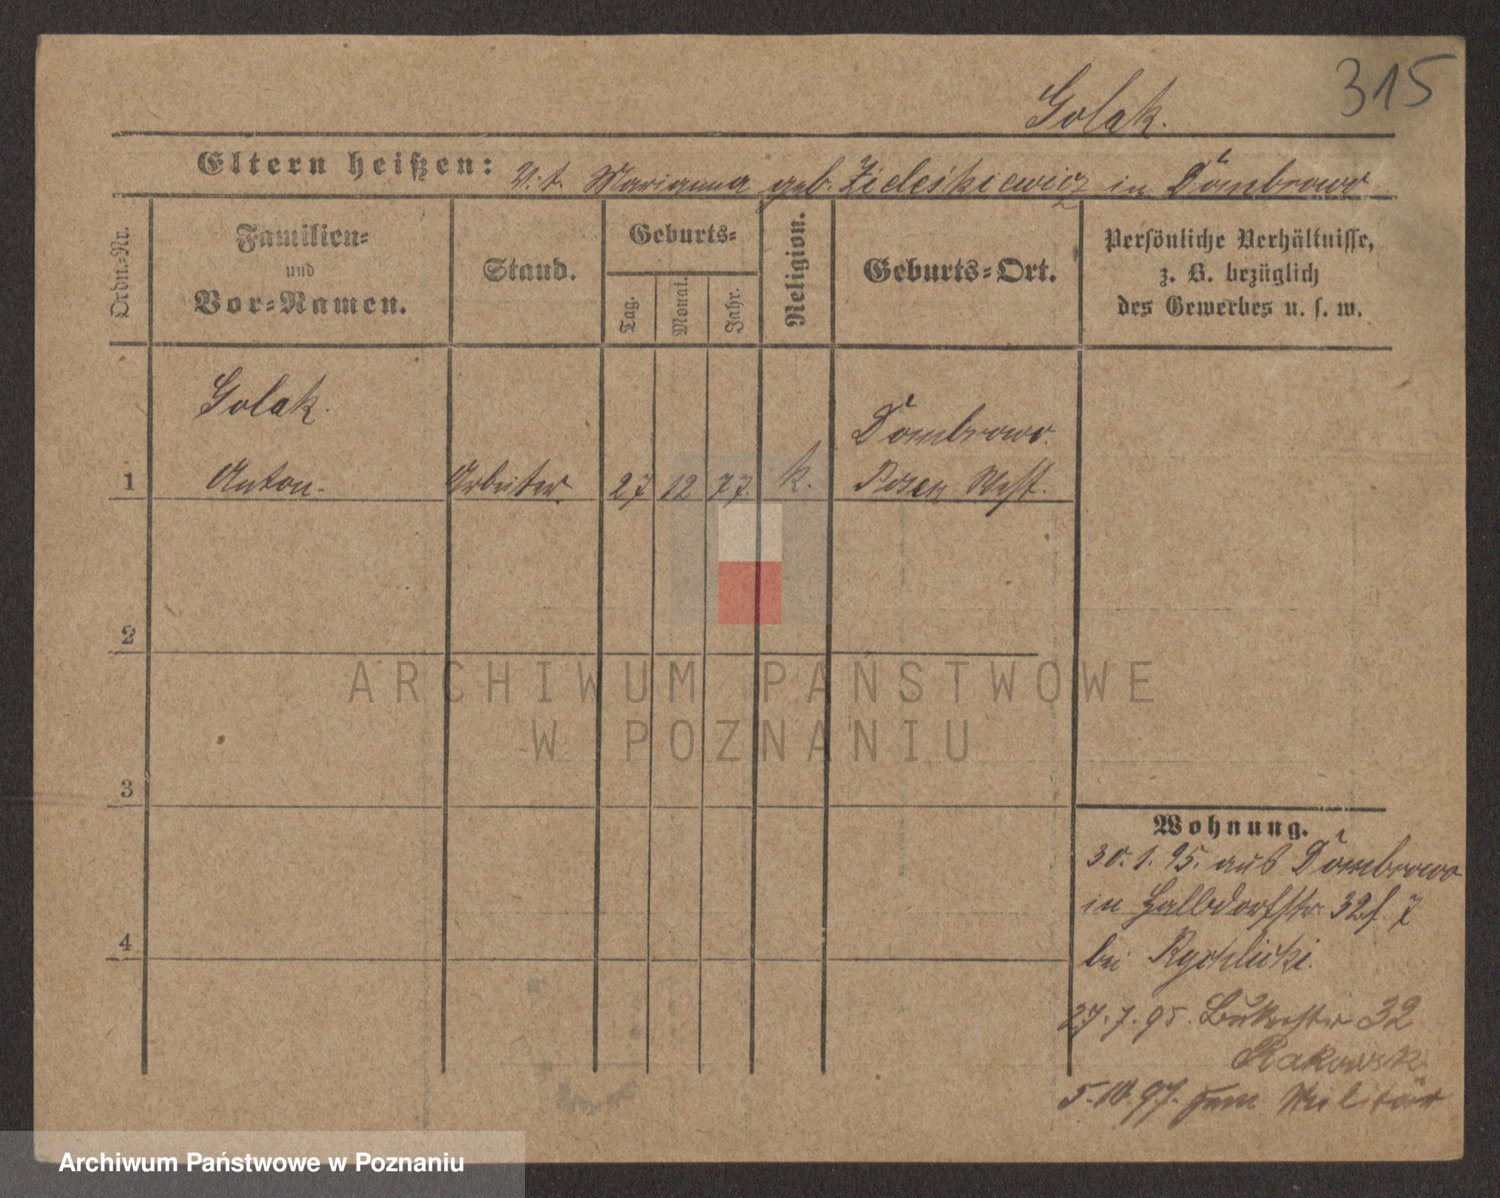 315
Golak.
Eltern heißen: V. t. Marianna geb. Zieleskiewicz in Dombrowo
Ordn.-Nr.
Familien-
und
Vor-Namen.
Stand.
Geburts-
Tag.
Monat.
Jahr.
Religion.
Geburts-Ort.
Persönliche Verhältnisse,
z. B. bezüglich
des Gewerbes u. s. w.
Golak.
Dombrowo.
1 Anton. Arbeiter 27 12 77. k. Posen West.
2
3
4
Wohnung.
30. 1. 95. aus Dombrowo
in Halbdorfstr. 32
bei Rychlicki.
27. 7. 95. 32
Rakowski
5. 10. 97. zum Militär
ARCHIWUM PAŃSTWOWE
W POZNANIU
Archiwum Państwowe w Poznaniu